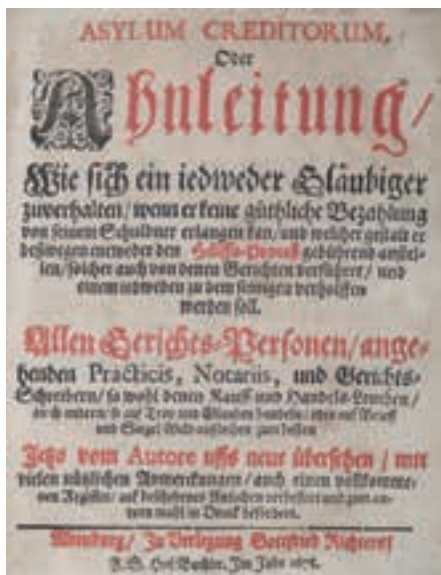 ASYLUM CREDITORUM,
Oder
Anleitung/
Wie sich ein iedweder Gläubiger
zuverhalten/ wenn er keine güthliche Bezahlung
von seinem Schuldner erlangen kan/ und welcher gestalt er
deßwegen entweder den Hülffs-Proceß gebührend anstel-
len/ solcher auch von denen Gerichten verführet/ und
einem iedweden zu dem seinigen verholffen
werden soll.
Allen Gerichts-Personen/ ange-
henden Practicis, Notariis, und Gerichts-
Schreibern/ so wohl denen Kauff und Handels-Leuthen/
auch andern/ so auf Treu und Glauben handeln/ oder auf Brieff
und Siegel Geld außleihen zum besten
Jetzo vom Autore uffs neue übersehen/ mit
vielen nützlichen Anmerckungen/ auch einen vollkomme-
nen Register/ auf beschehenes Anhalten verbessert und zum an-
dern mahl in Druck befördert.
Altenburg/ In Verlegung Gottfried Richters/
F. S. Hof-Buchh. Im Jahr